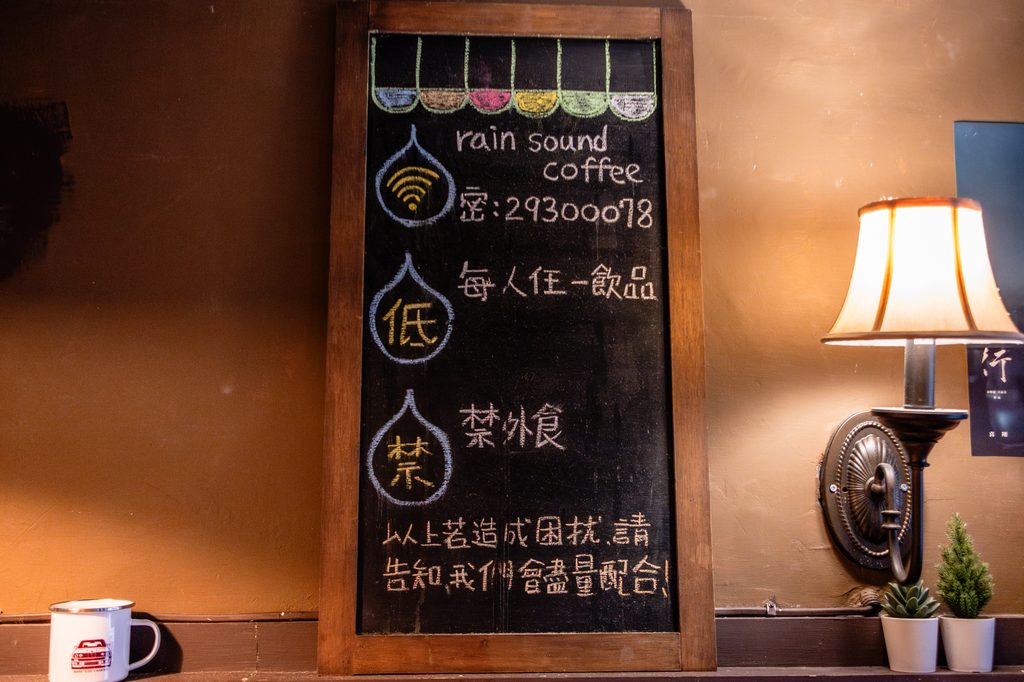 rain sound
coffee
密:29300078
低
每人任一飲品
禁
禁外食
以上若造成困扰,請
告知,我們會盡量配合!
行